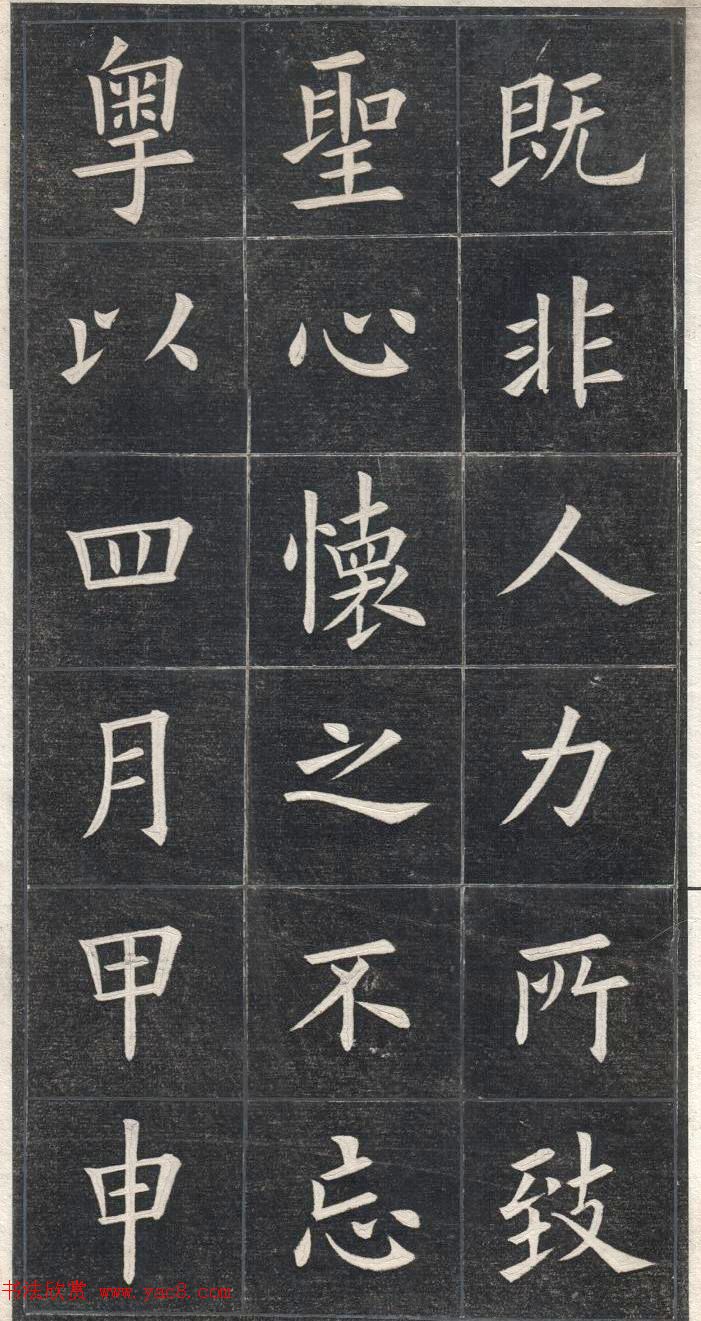 既非人力所致
聖心懷之不忘
粤以四月甲申
书法欣赏 www.yac8.com